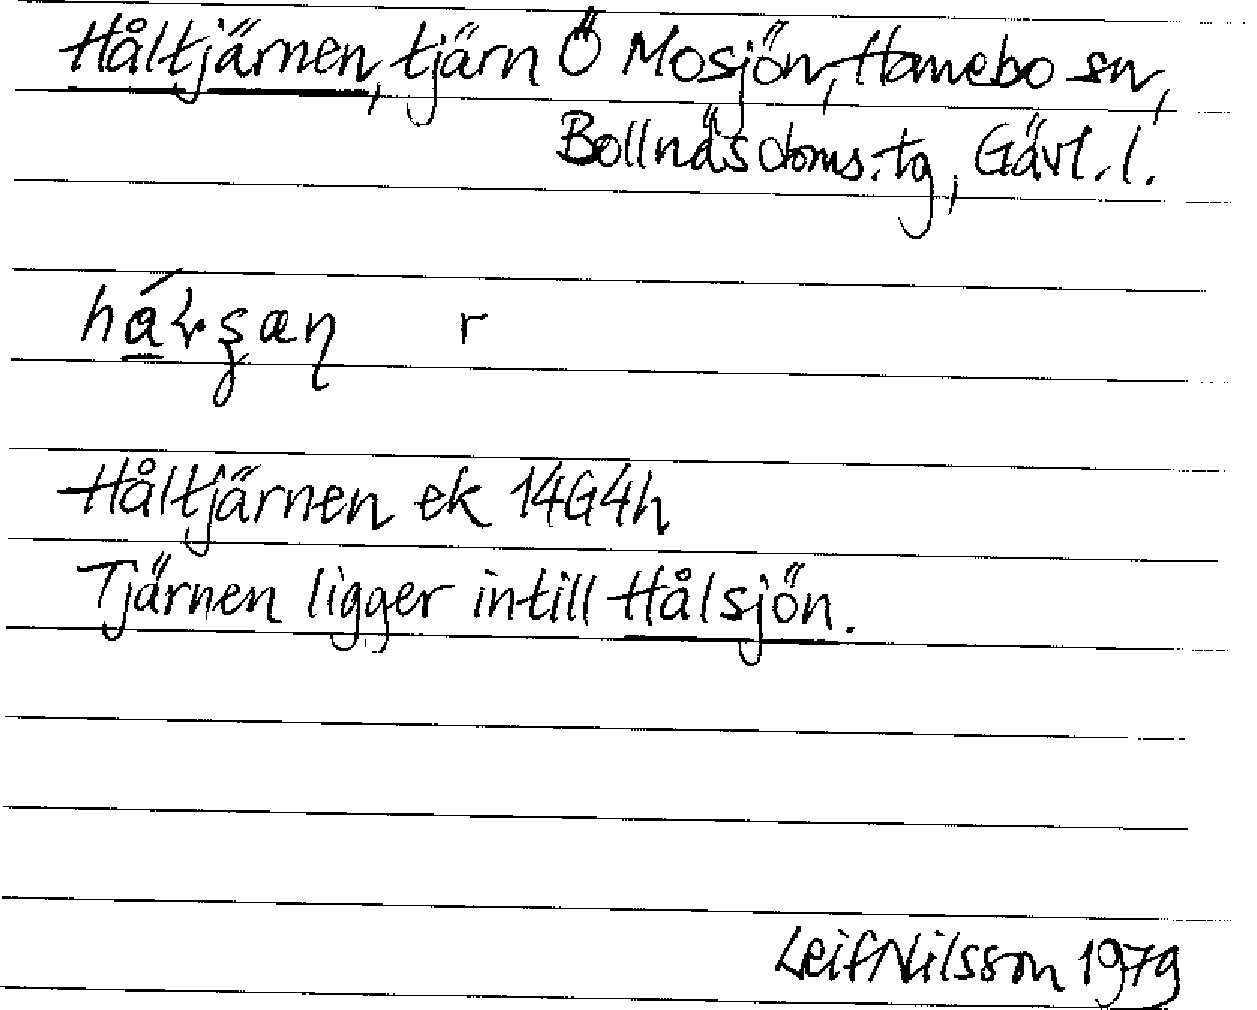 Håltjärnen, tjärn Ö Mosjön, Hanebo sn,
Bollnäs doms.tg, Gävl. l.
r
Håltjärnen ek 14G4h
Tjärnen ligger intill Hålsjön.
Leif Nilsson 1979